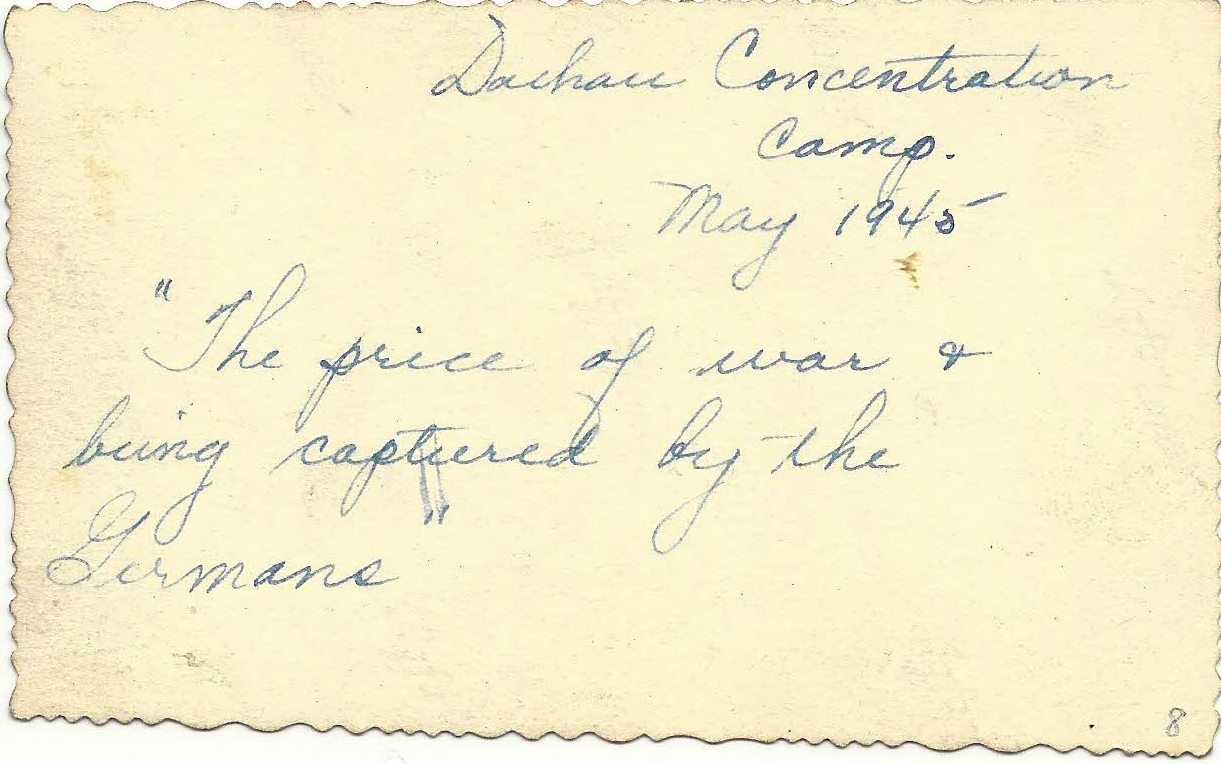 Dachau Concentration
Camp.
May 1945
"The price of war &
being captured by the
Germans"
8